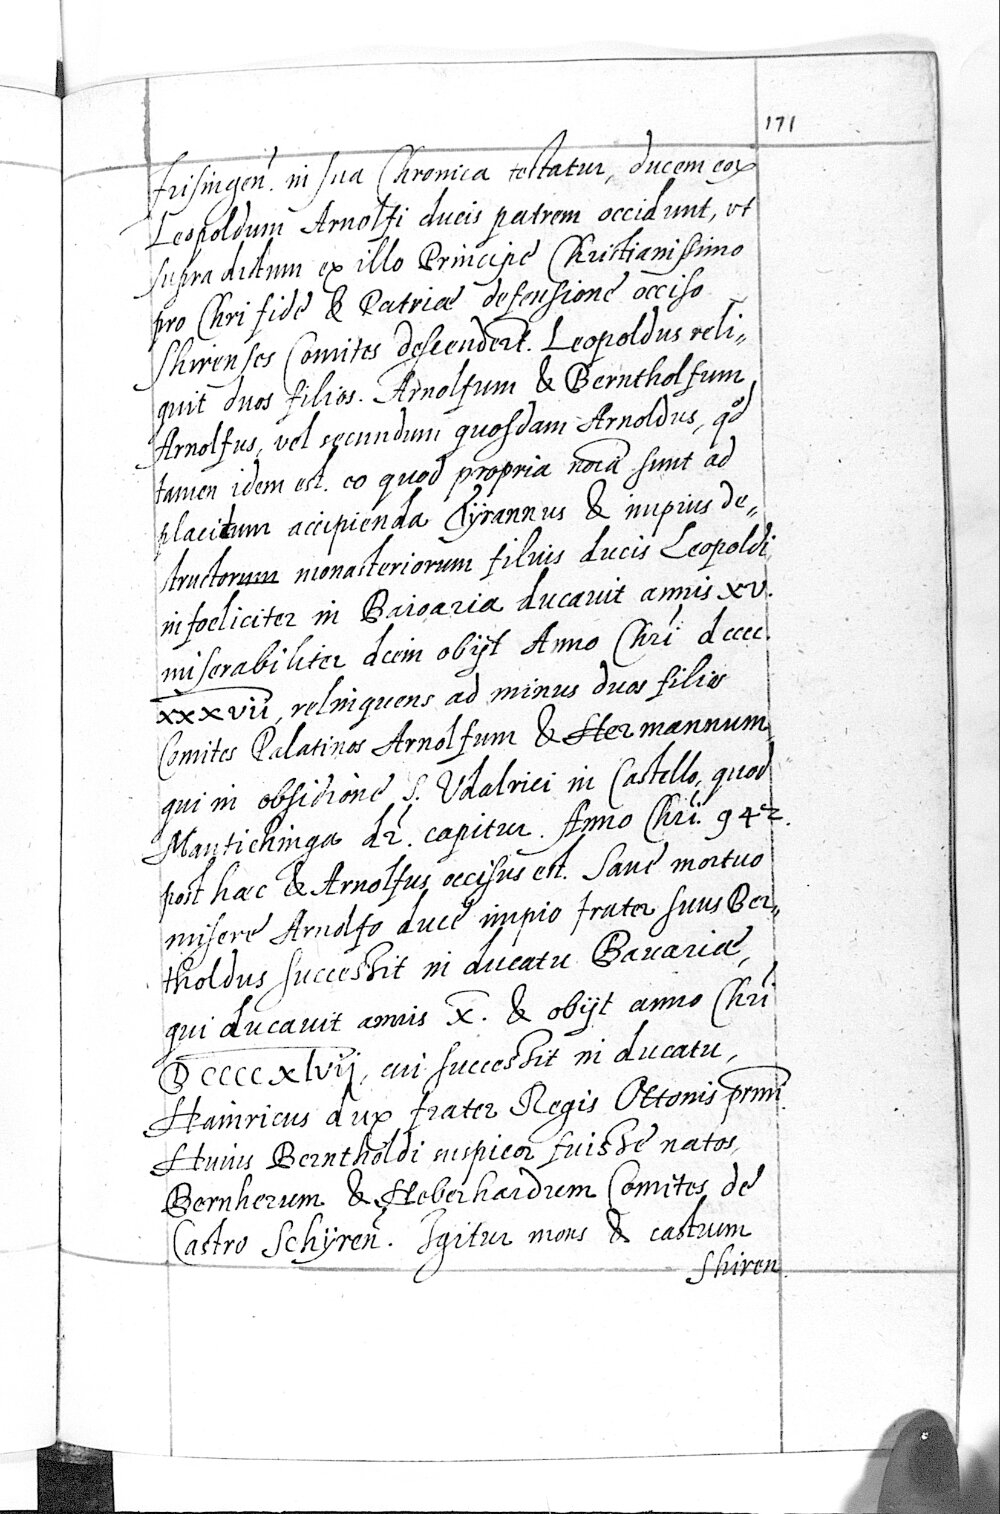 171
frisingen̄. in sua Chronica testatur, ducem eoꝝ
Leopoldum Arnolfi ducis patrem occidunt, vt
supra dictum ex illo Principe Christianissimo
pro Chri fide & Patriæ defensione occiso
Shirenses Comites descendert̄. Leopoldus reli„
quit duos filios. Arnolfum & Berntholfum
Arnolfus, vel secundum quosdam Arnoldus, qd̄
tamen idem est. eo quod propria noīa sunt ad
placitum accipienda Tÿrannus & impius de„
structorum monasteriorum filius ducis Leopoldi
infoeliciter in Baioaria ducauit annis XV.
miserabiliter dcem obijt Anno Chrī dcccc.
xxxvii, relinquens ad minus duos filios
Comites Palatinos Arnolfum & Hermannum
qui in obsidione S. Vdalrici in Castello, quod
Mantichinga dr̄. capitur. Anno Chrī. 942.
post hæc & Arnolfus occisus est. Sane mortuo
misere Arnolfo duce impio frater suus Ber„
tholdus successit in ducatu Bauariæ,
qui ducauit annis X. & obijt anno Chrī
Dccccxlvij, cui successit in ducatu,
Hainricus dux frater Regis Ottonis prīmi
Huius Berntholdi suspicor fuisse natos,
Bernherum & Heberhardum Comites de
Castro Schÿren̄. Igitur mons & castrum
Shiren